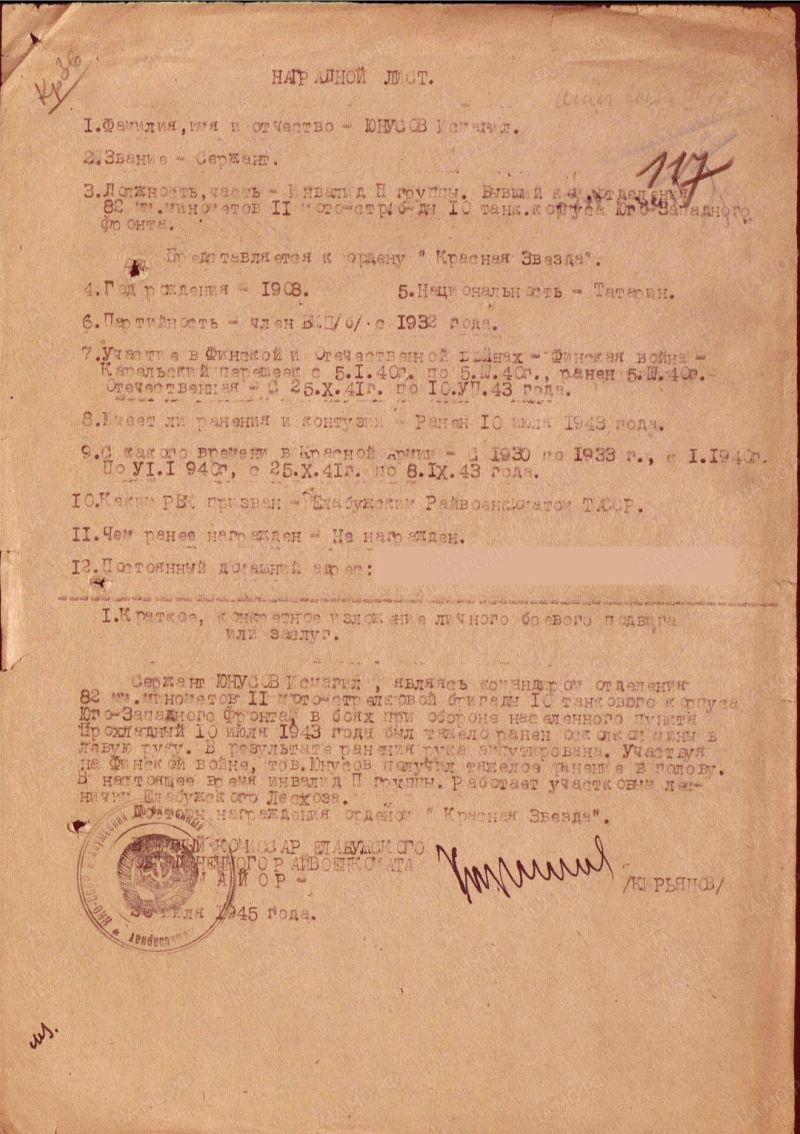 Кр36
НАГРАДНОЙ ЛИСТ.
1.Фамилия,имя и отчество - ЮНУСОВ Исмагил.
117
2.Звание - Сержант.
3.Должность,часть - Инвалид II группы. Бывший ком.отделения
82 мм.минометов II мото-стр.б-ды 10 танк.корпуса Юго-Западного
фронта.
Представляется к ордену " Красная Звезда".
4.Год рождения - 1908. 5.Национальность - Татарин.
6.Партийность - член ВКП/б/ с 1932 года.
7.Участие в Финской и Отечественной войнах - Финская война -
Карельский перешеек с 5.I.40г. по 5.III.40г., ранен 5.III.40г.
Отечественная - С 25.X.41г. по 10.УП.43 года.
8.Имеет ли ранения и контузии - Ранен 10 июля 1943 года.
9.С какого времени в Красной Армии - С 1930 по 1933 г., с I.1940г.
По УI.I940г, с 25.X.41г. по 8.IX.43 года.
10.Каким РВК призван - Елабужским Райвоенкоматом ТАССР.
II.Чем ранее награжден - Не награжден.
12.Постоянный домашний адрес:
I.Краткое, конкретное изложение личного боевого подвига
или заслуг.
Сержант ЮНУСОВ Исмагил , являясь командиром отделения
82 мм.минометов II мото-стрелковой бригады 10 танкового корпуса
Юго-Западного Фронта, в боях при обороне населенного пункта
Прохладный 10 июля 1943 года был тяжело ранен осколком мины в
левую руку. В результате ранения рука ампутирована. Участвуя
на Финской войне, тов.Юнусов получил тяжелое ранение в голову.
В настоящее время инвалид П группы. Работает участковым лес-
ничим Елабужского Лесхоза.
Достоин награждения орденом " Красная Звезда".
ВОЕННЫЙ КОМИССАР ЕЛАБУЖСКОГО
ОБЪЕДИНЕННОГО РАЙВОЕНКОМАТА
МАЙОР - /КИРЬЯНОВ/
июля 1945 года.